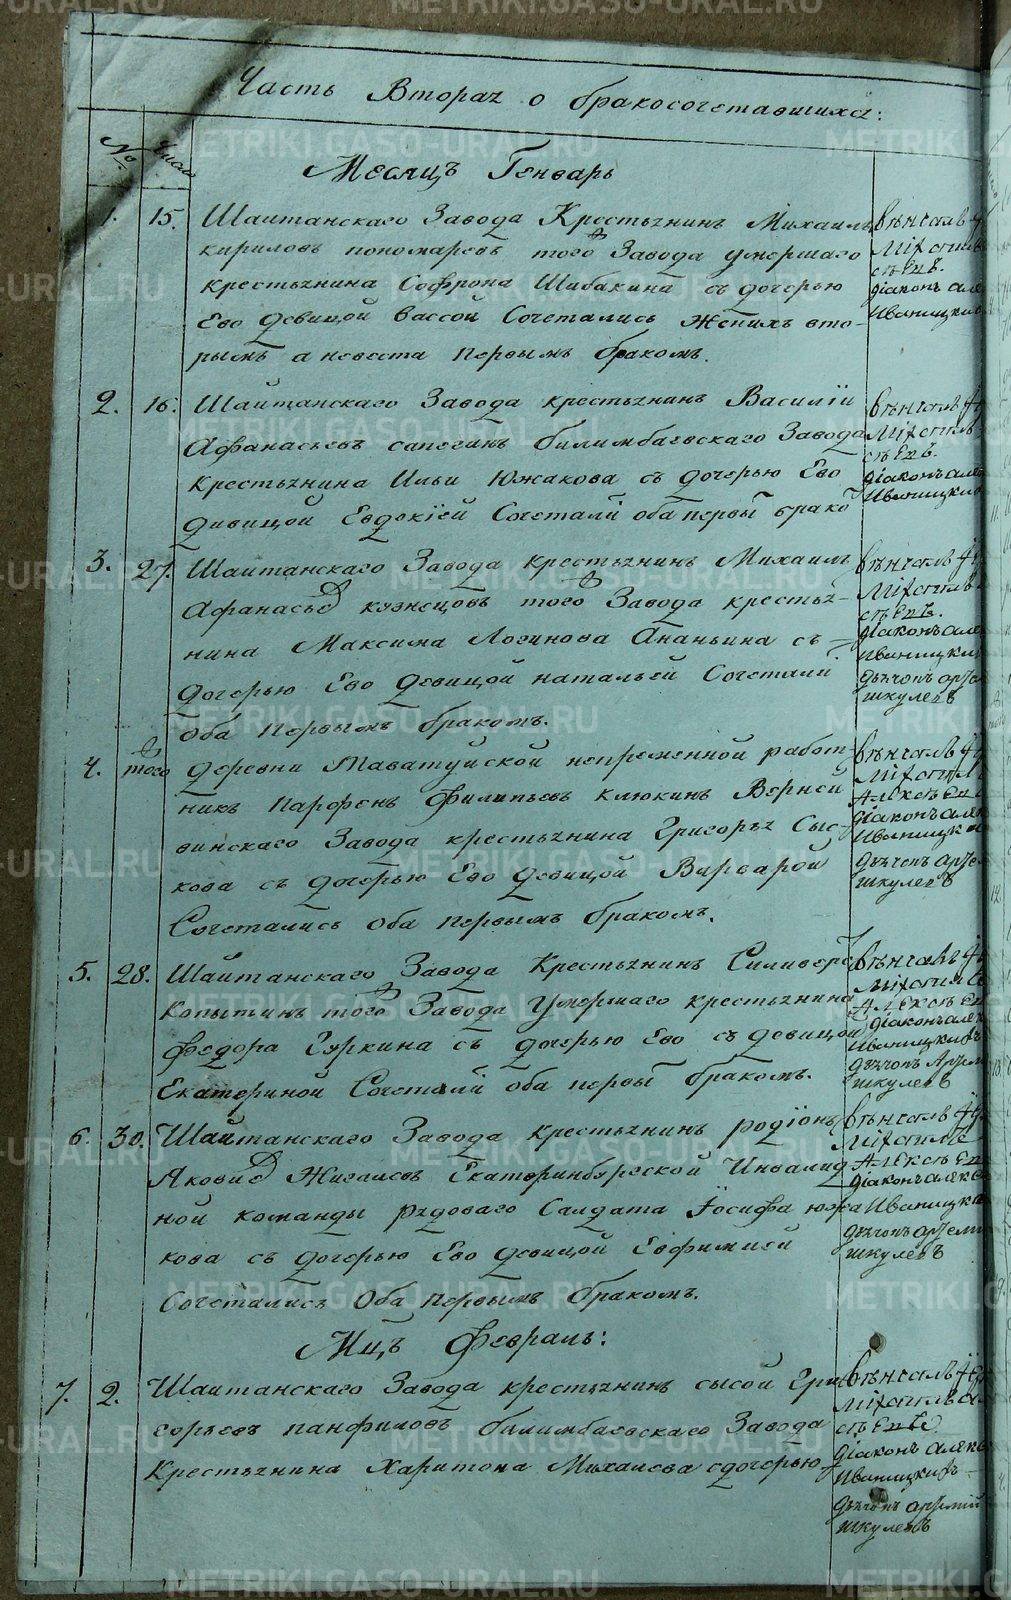 Часть Вторая о бракосочетавшихся:
№
числа
Месяцъ Генварь
1.
15.
Шайтанскаго Завода Крестьянинъ Михаилъ
кириловъ пономаревъ того Завода умершаго
крестьянина Софрона Шибакина съ дочерью
Ево девицой Вассой Сочетались Женихъ вто-
рымъ а невеста первымъ бракомъ.
Вѣнчалъ
діаконъ
Иваницкий
2.
16.
Шайтанскаго Завода крестьянинъ Василій
Афанасьевъ сапегинъ билимбаевскаго Завода
крестьянина Ильи Южакова съ дочерью Ево
дивицой Евдокіей Сочетали оба первы брако
Вѣнчалъ
діаконъ
Иваницкий
3.
27.
Шайтанскаго Завода крестьянинъ Михаилъ
Афанасье кузнецовъ того Завода крестья-
нина Максима Логинова Ананьина съ
дочерью Ево девицой натальей Сочетали
оба первымъ бракомъ.
Вѣнчалъ
діаконъ
Иваницкий
дьячокъ
шкулевъ
4.
того
деревни Таватуйской непременной работ-
никъ Парфенъ Филипьевъ клюкинъ Верней
винскаго Завода крестьянина Григорья Сыс-
кова съ дочерью Ево девицой Варварой
Сочетались оба первымъ бракомъ.
Вѣнчалъ
діаконъ
Иваницк
дьячокъ
шкулевъ
5.
28.
Шайтанскаго Завода Крестьянинъ Силиверс
копытинъ того Завода Умершаго крестьянина
федора Гуркина съ дочерью Ево съ девицой
Екатериной Сочетали оба первы бракомъ.
Вѣнчалъ
діаконъ
Иваницкий
дьячокъ
шкулевъ
6.
30.
Шайтанскаго Завода крестьянинъ родіонъ
Якови Жигалевъ Екатеринбургской Инвалид
ной команды рядоваго Салдата Іосифа южа
кова съ дочерью Ево девицой Евфимией
Сочетались Оба первымъ бракомъ.
Вѣнчалъ
діаконъ
Иваницки
дьячокъ
шкулевъ
Мцъ Февраль:
7.
2.
Шайтанскаго Завода крестьянинъ сысой Гри
горьевъ панфиловъ билимбаевскаго Завода
Крестьянина Харитона Михалева сдочерью
Вѣнчалъ
діаконъ
Иваницкий
дьячокъ артемій
шкулевъ
METRIKI.GASO-URAL.RU